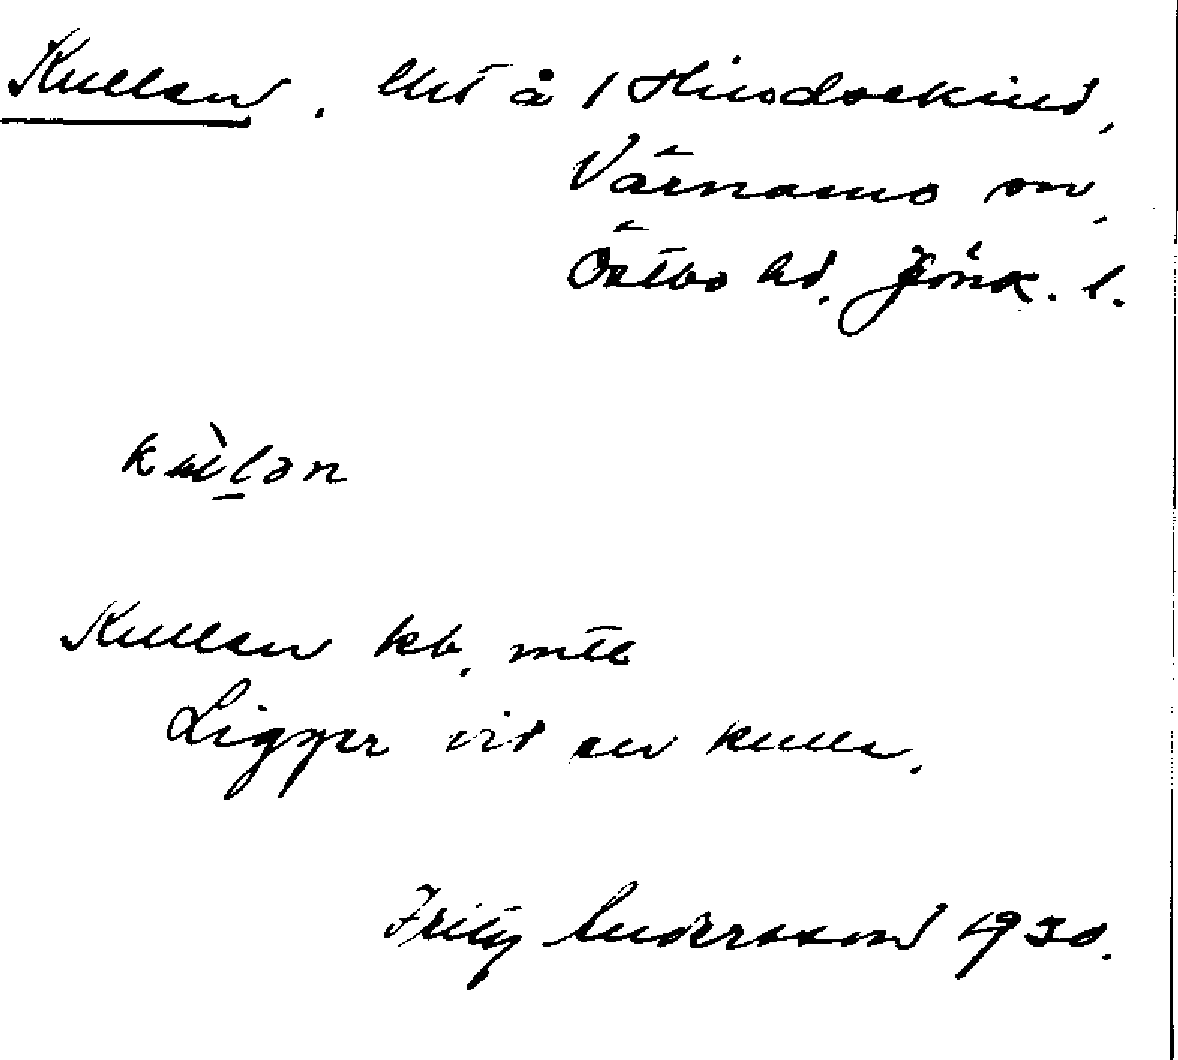 Kullen. Lht å 1 Hindsekind,
Värnamo sn,
Östbo hd. Jönk. l.
kùl̠ən
Kullen kb, mtl
Ligger vid en kulle.
Fritz Andersson 1930.